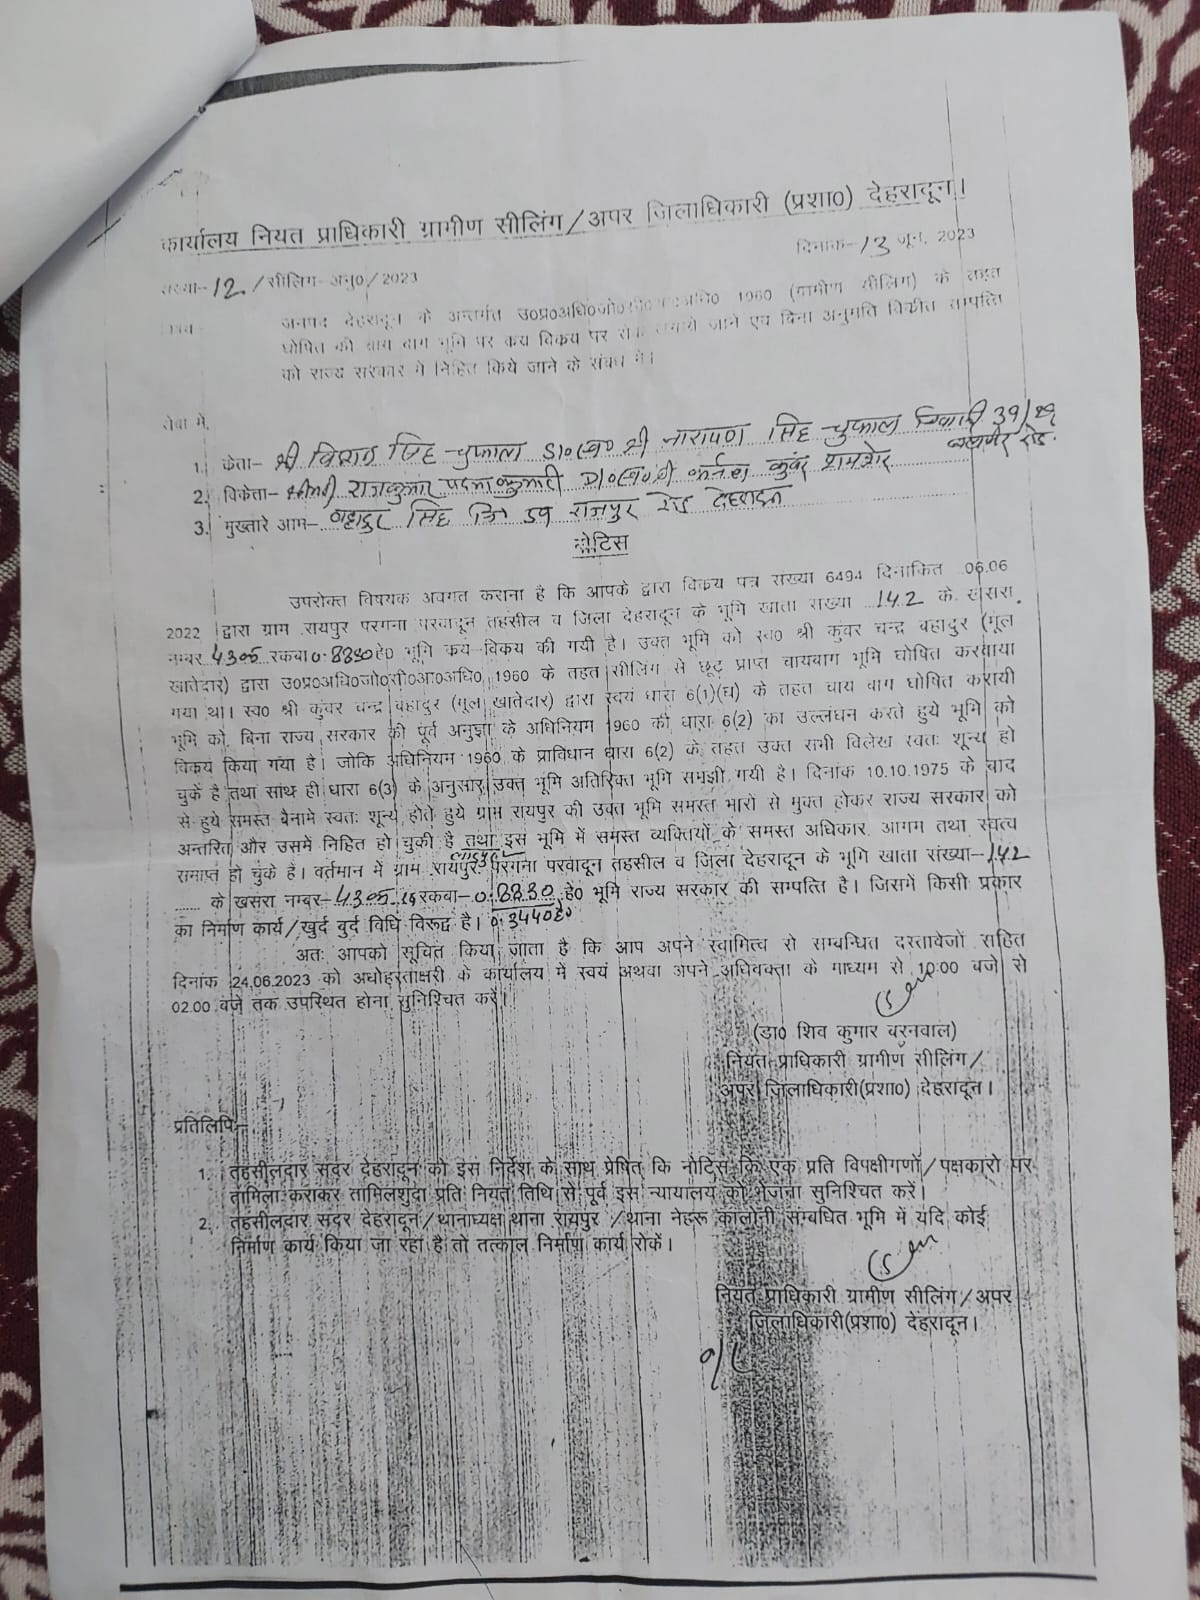 कार्यालय नियत प्राधिकारी ग्रामीण सीलिंग/अपर जिलाधिकारी (प्रशा0) देहरादून।
दिनांक-13 जून, 2023
संख्या-12/सीलिंग-अनु0/2023
जनपद देहरादून के अन्तर्गत उ0प्र0अधि0जो0 1960 (ग्रामीण सीलिंग) के तहत
घोषित की चाय बाग भूमि पर कय विकय पर रोक लगाये जाने एवं बिना अनुमति विकीत सम्पत्ति
को राज्य सरकार में निहित किये जाने के संबंध में।
सेवा में,
1. केता- श्री सिंह चुफाल S/o स्व0 श्री नारायण सिंह चुफाल निवासी 39/
रोड
2. विकेता- श्रीमती राजकुमारी D/o स्व0 श्री कर्नल कुंवर शमशेर
3. मुख्तारे आम- बहादुर सिंह नि 59 राजपुर रोड देहरादून
नोटिस
उपरोक्त विषयक अवगत कराना है कि आपके द्वारा विकय पत्र संख्या 6494 दिनांकित 06.06
2022 द्वारा ग्राम रायपुर परगना परवादून तहसील व जिला देहरादून के भूमि खाता संख्या 142 के खसरा
नम्बर रकबा 0.8830 हे0 भूमि कय-विकय की गयी है। उक्त भूमि को स्व0 श्री कुंवर चन्द्र बहादुर (मूल
खातेदार) द्वारा उ0प्र0अधि0जो0सी0आ0अधि0 1960 के तहत सीलिंग से छूट प्राप्त चायबाग भूमि घोषित करवाया
गया था। स्व0 श्री कुंवर चन्द्र बहादुर (मूल खातेदार) द्वारा स्वयं धारा 6(1)(घ) के तहत चाय बाग घोषित करायी
भूमि को, बिना राज्य सरकार की पूर्व अनुज्ञा के अधिनियम 1960 की धारा 6(2) का उल्लंघन करते हुये भूमि को
विकय किया गया है। जोकि अधिनियम 1960 के प्राविधान धारा 6(2) के तहत उक्त सभी विलेख स्वतः शून्य हो
चुके है तथा साथ ही धारा 6(3) के अनुसार उक्त भूमि अतिरिक्त भूमि समझी गयी है। दिनांक 10.10.1975 के बाद
से हुये समस्त बैनामे स्वतः शून्य होते हुये ग्राम रायपुर की उक्त भूमि समस्त भारों से मुक्त होकर राज्य सरकार को
अन्तरित और उसमें निहित हो चुकी है तथा इस भूमि में समस्त व्यक्तियों के समस्त अधिकार, आगम तथा स्वत्व
समाप्त हो चुके है। वर्तमान में ग्राम रायपुर परगना परवादून तहसील व जिला देहरादून के भूमि खाता संख्या-142
के खसरा नम्बर- रकबा-0.8830 हे0 भूमि राज्य सरकार की सम्पत्ति है। जिसमें किसी प्रकार
का निर्माण कार्य/खुर्द बुर्द विधि विरूद्व है। 0.3440हे0
अतः आपको सूचित किया जाता है कि आप अपने स्वामित्व से सम्बन्धित दस्तावेजों सहित
दिनांक 24.06.2023 को अधोहस्ताक्षरी के कार्यालय में स्वयं अथवा अपने अधिवक्ता के माध्यम से 10:00 बजे से
02.00 बजे तक उपस्थित होना सुनिश्चित करें।
(डा0 शिव कुमार बरनवाल)
नियत प्राधिकारी ग्रामीण सीलिंग/
अपर जिलाधिकारी(प्रशा0) देहरादून।
प्रतिलिपि:-
1. तहसीलदार सदर देहरादून को इस निर्देश के साथ प्रेषित कि नोटिस कि एक प्रति विपक्षीगणों/पक्षकारो पर
तामिला कराकर तामिलशुदा प्रति नियत तिथि से पूर्व इस न्यायालय को भेजना सुनिश्चित करें।
2. तहसीलदार सदर देहरादून/थानाध्यक्ष थाना रायपुर/थाना नेहरू कालोनी सम्बधित भूमि में यदि कोई
निर्माण कार्य किया जा रहा है तो तत्काल निर्माण कार्य रोकें।
नियत प्राधिकारी ग्रामीण सीलिंग/अपर
जिलाधिकारी(प्रशा0) देहरादून।